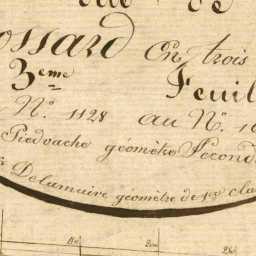 ossard En trois
3eme Feuil
N°. 1128 au N°. 1
Piedvache géomètre Second
Delamaire géomètre de 1re cla